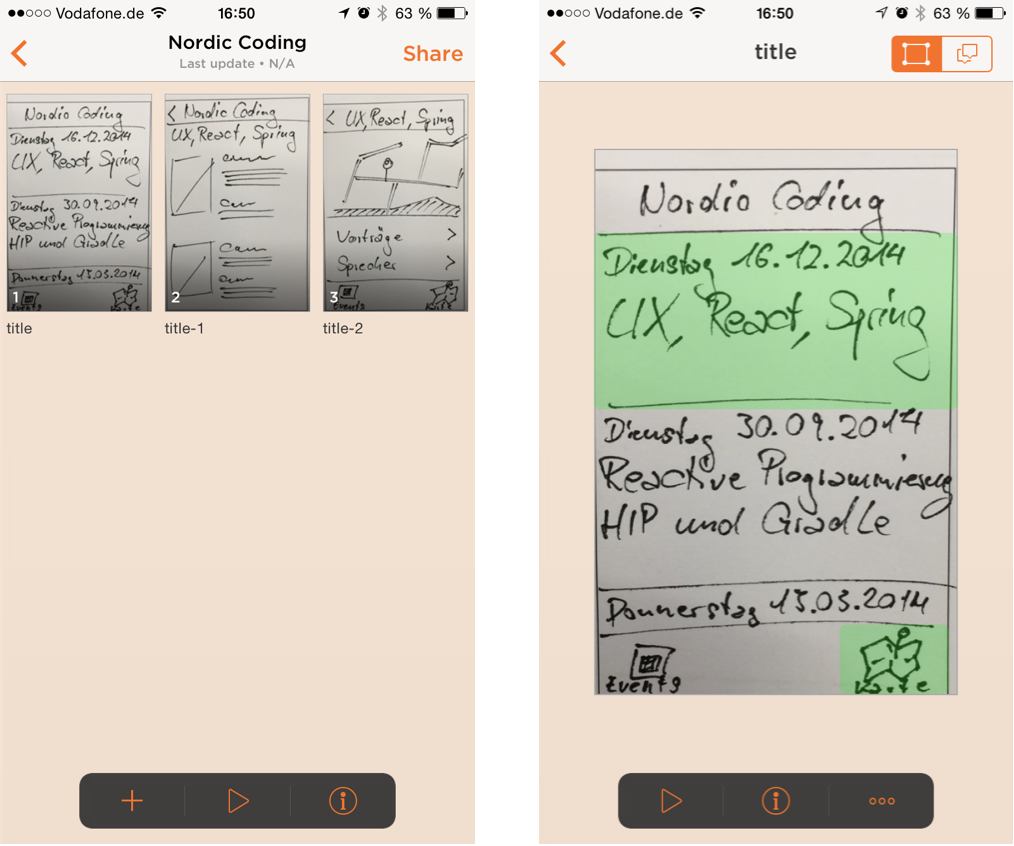 Vodafone.de 16:50 63 %
Nordic Coding
Last update • N/A
Share
Nordio Coding
Dienstag 16.12.2014
UX, React, Spring
Dienstag 30.09.2014
Reactive Programmierung
HIP und Gradle
Donnerstag 13.03.2014
1
Events
Karte
title
< Nordio Coding
UX, React, Spring
2
title-1
< UX, React, Spring
Vorträge >
Sprecher >
3
title-2
Vodafone.de 16:50 63 %
title
Nordio Coding
Dienstag 16.12.2014
UX, React, Spring
Dienstag 30.09.2014
Reactive Programmierung
HIP und Gradle
Donnerstag 13.03.2014
Events
Karte